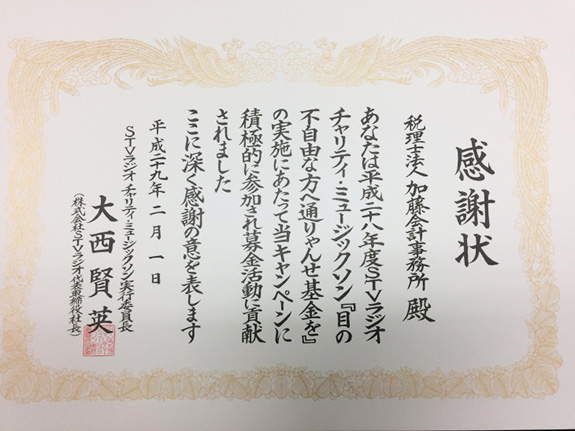 感謝状
税理士法人 加藤会計事務所 殿
あなたは平成二十八年度STVラジオ
チャリティ・ミュージックソン『目の
不自由な方へ通りゃんせ基金を』
の実施にあたって当キャンペーンに
積極的に参加され募金活動に貢献
されました
ここに深く感謝の意を表します
平成二十九年 二月 一日
STVラジオ チャリティ・ミュージックソン実行委員長
大西賢英
(株式会社STVラジオ代表取締役社長)